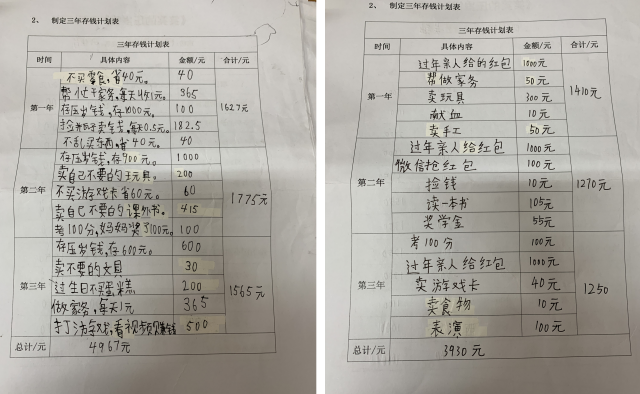 2、 制定三年存钱计划表
三年存钱计划表
时间 具体内容 金额/元 合计/元
不买零食,省40元。 40
帮忙干家务,每天收1元。 365
第一年 存压岁钱,存1000元。 100 1627元
捡瓶子卖钱,每天0.5元。 182.5
不乱买东西,省40元。 40
存压岁钱,存900元。 1000
卖自己不要的玩具。 200
第二年 不买游戏卡省60元。 60 1775元
卖自己不要的课外书。 415
考100分,妈妈奖了100元。 100
存压岁钱,存600元。 600
卖不要的文具 30
第三年 过生日不买蛋糕 200 1565元
做家务,每天1元 365
打游戏,看视频赚钱 500
总计/元 4967元
2、 制定三年存钱计划表
三年存钱计划表
时间 具体内容 金额/元 合计/元
过年亲人给的红包 1000元
帮做家务 50元
第一年 卖玩具 300元 1410元
献血 10元
卖手工 50元
过年亲人给红包 1000元
微信抢红包 100元
第二年 捡钱 10元 1270元
读一本书 105元
奖学金 55元
考100分 100元
过年亲人给红包 1000元
第三年 卖游戏卡 40元 1250
卖食物 10元
表演 100元
总计/元 3930元